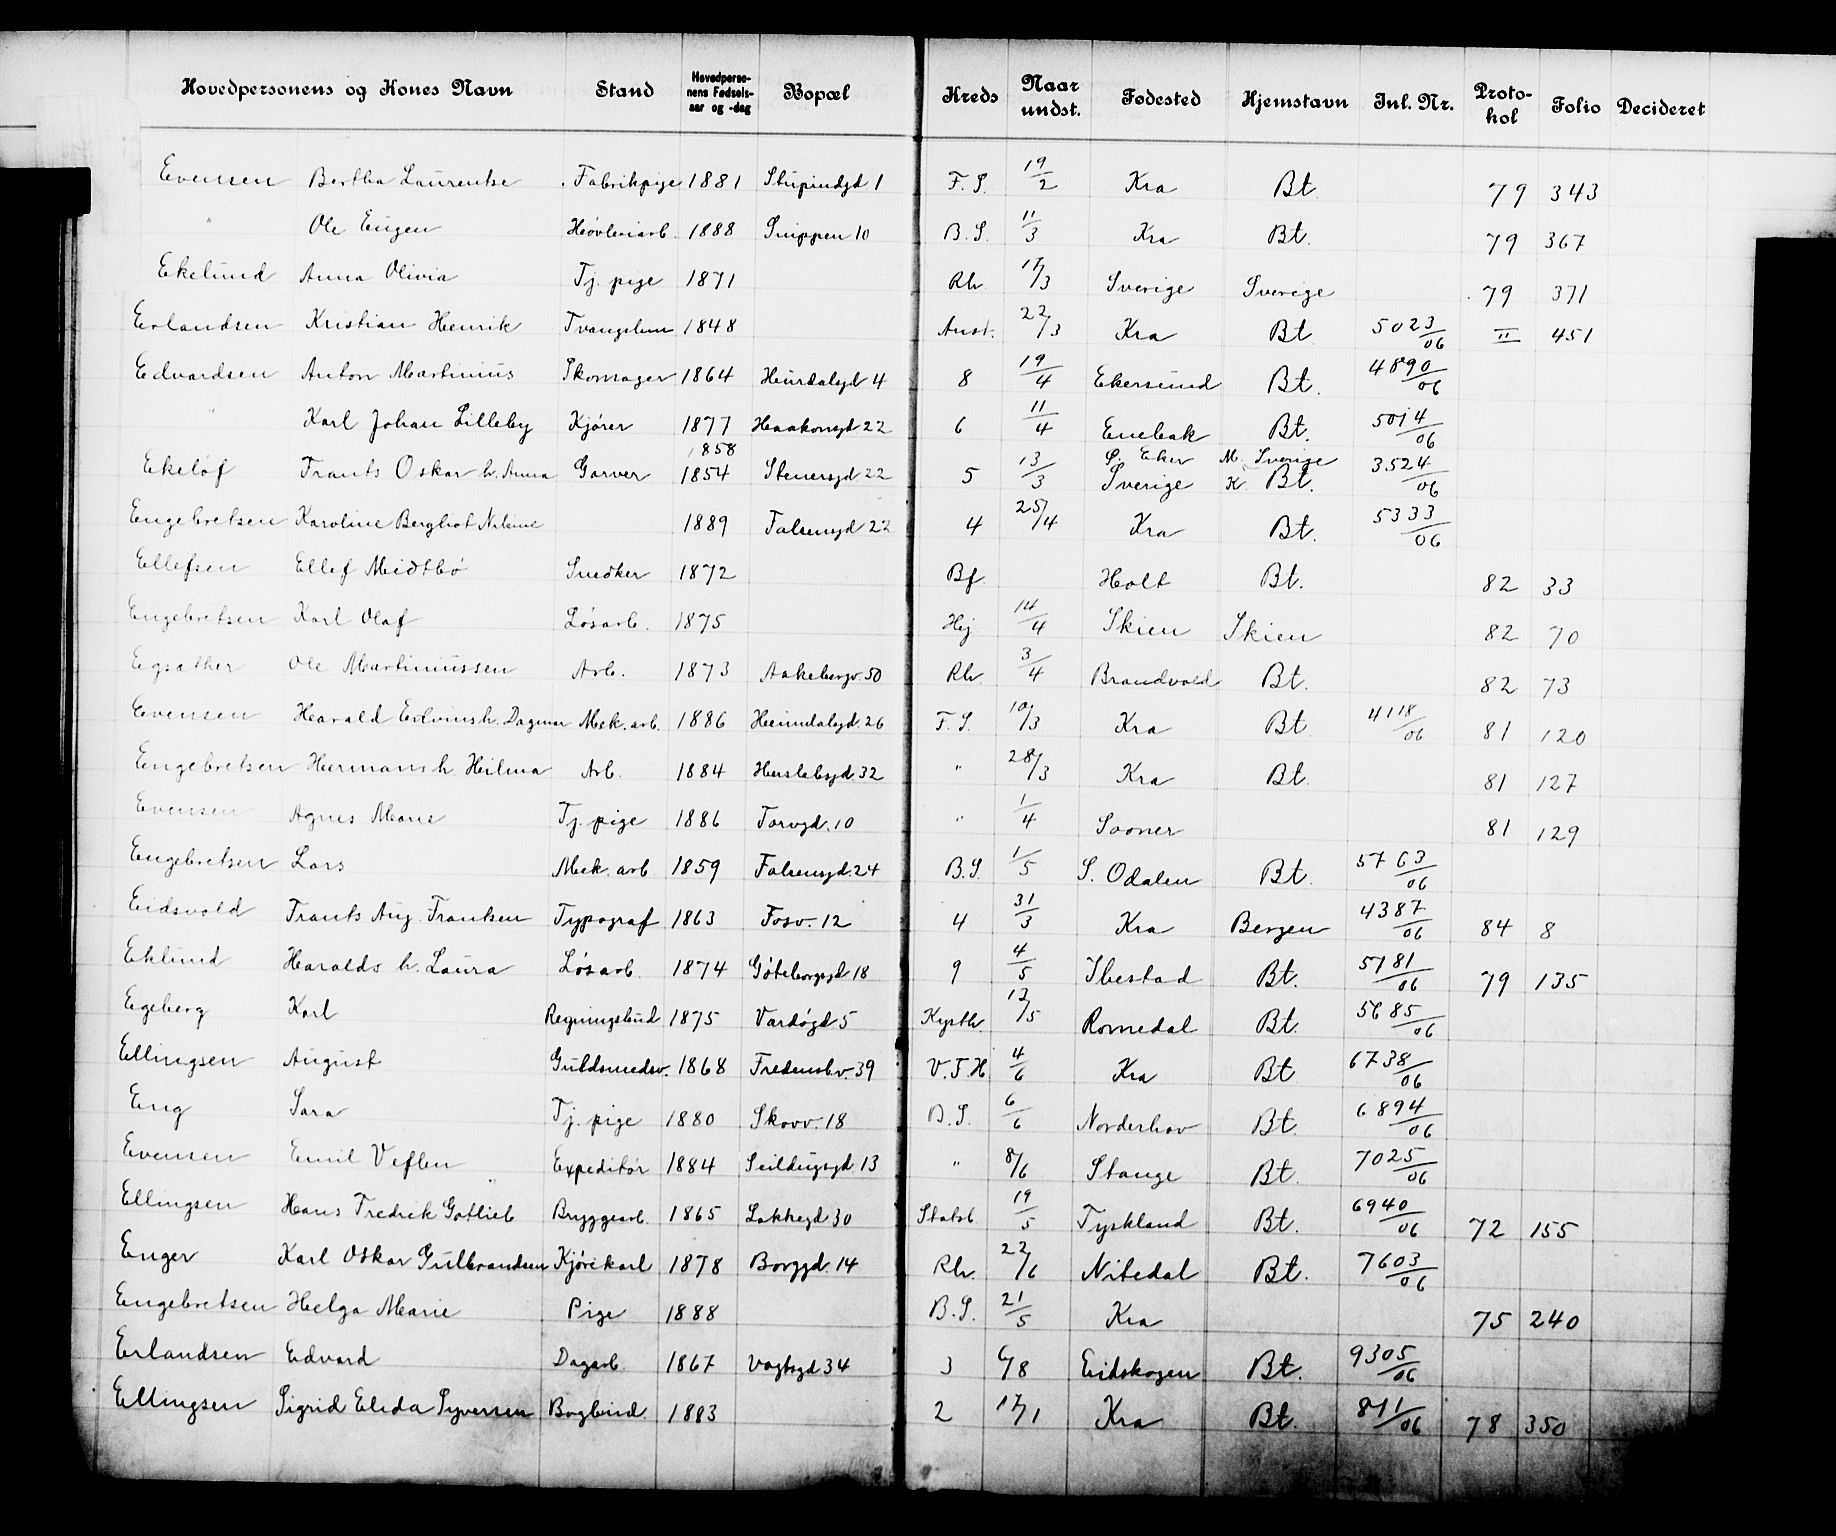 Hovedpersonens og Kones Navn Stand Hovedpersonens Fødselsaar og -dag Bopæl Kreds Naar undst. Fødested Hjemstavn Inl. Nr. Protokol Folio Decideret
Evensen Bertha Laurentse Fabrikpige 1881 Stupindgd 1 F. S. 19/2 Kra Bt. 79 343
" Ole Eugen Høvleriarb. 1888 Snippen 10 B. S. 11/3 Kra Bt. 79 367
Ekelund Anna Olivia Tj. pige 1871 Rh. 17/3 Sverige Sverige 79 371
Erlandsen Kristian Henrik Tvangslem 1848 Anst. 22/3 Kra Bt. 5023/06 II 451
Edvardsen Anton Martinius Skomager 1864 Hurdalsgd 4 8 19/4 Ekersund Bt. 4890/06
" Karl Johan Lilleby Kjører 1877 Haakonsgd 22 6 11/4 Enebak Bt. 5014/06
1858 S. Eker M. Sverige
Ekeløf Frants Oskar h. Anna Garver 1854 Stenersgd 22 5 13/3 Sverige K. Bt. 3524/06
Engebretsen Karoline Bergliot Nilsine 1889 Falsensgd 22 4 25/4 Kra Bt. 5333/06
Ellefsen Ellef Midtbø Snedker 1872 Bf. Holt Bt. 82 33
Engebretsen Karl Olaf Løsarb. 1875 Hej 14/4 Skien Skien 82 70
Egsæther Ole Martiniussen Arb. 1873 Aakebergv. 50 Rh. 3/4 Brandvold Bt. 82 73
Evensen Harald Edvins h. Dagmar Mek. arb. 1886 Heimdalsgd. 26 F. S. 10/3 Kra Bt 4118/06 81 120
Engebretsen Hermans h. Hilma Arb. 1884 Herslebsgd 32 " 28/3 Kra Bt. 81 127
Evensen Agnes Marie Tj. pige 1886 Torvgd. 10 " 1/4 Sooner 81 129
Engebretsen Lars Mek. arb 1859 Falsensgd. 24 B. S. 1/5 S. Odalen Bt. 5763/06
Eidsvold Frants Aug. Frantsen Typograf 1863 Fosv. 12 4 31/3 Kra Bergen 4387/06 84 8
Eklund Haralds h. Laura Løsarb. 1874 Göteborgsgd 18 9 4/5 Ibestad Bt. 5181/06 79 135
Egeberg Karl Regningsbud 1875 Vardøgd 5 Kysth. 12/5 Romedal Bt. 5685/06
Ellingsen August Guldsmedsv. 1868 Fredensb.v. 39 V. F. H. 4/6 Kra Bt 6738/06
Eng Sara Tj. pige 1880 Skovv. 18 B. S. 6/6 Norderhov Bt. 6894/06
Evensen Emil Veflen Expeditør 1884 Seildugsgd 13 " 8/6 Stange Bt. 7025/06
Ellingsen Hans Fredrik Gotlieb Bryggearb. 1865 Lakkegd 30 Statsb 19/5 Tyskland Bt. 6940/06 72 155
Enger Karl Oskar Gulbrandsen Kjørekarl 1878 Borggd. 14 Rh. 22/6 Nitedal Bt. 7603/06
Engebretsen Helga Marie Pige 1888 B. S. 21/5 Kra 75 240
Erlandsen Edvard Dagarb. 1867 Vogtsgd 34 3 6/8 Eidskogen Bt. 9305/06
Ellingsen Sigrid Elida Syversen Bogbind. 1883 2 17/1 Kra Bt. 811/06 78 350